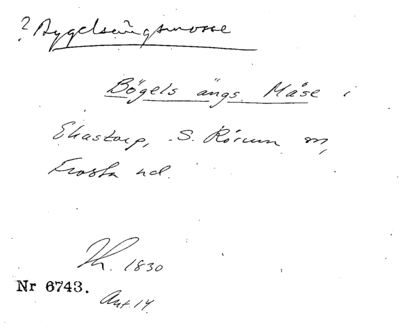 ? Bygelsängsmosse
Bögels ängs Måse i
Ekastorp, S. Rörum sn,
Frosta hd.
1830
Nr 6743.
Ant. 14.